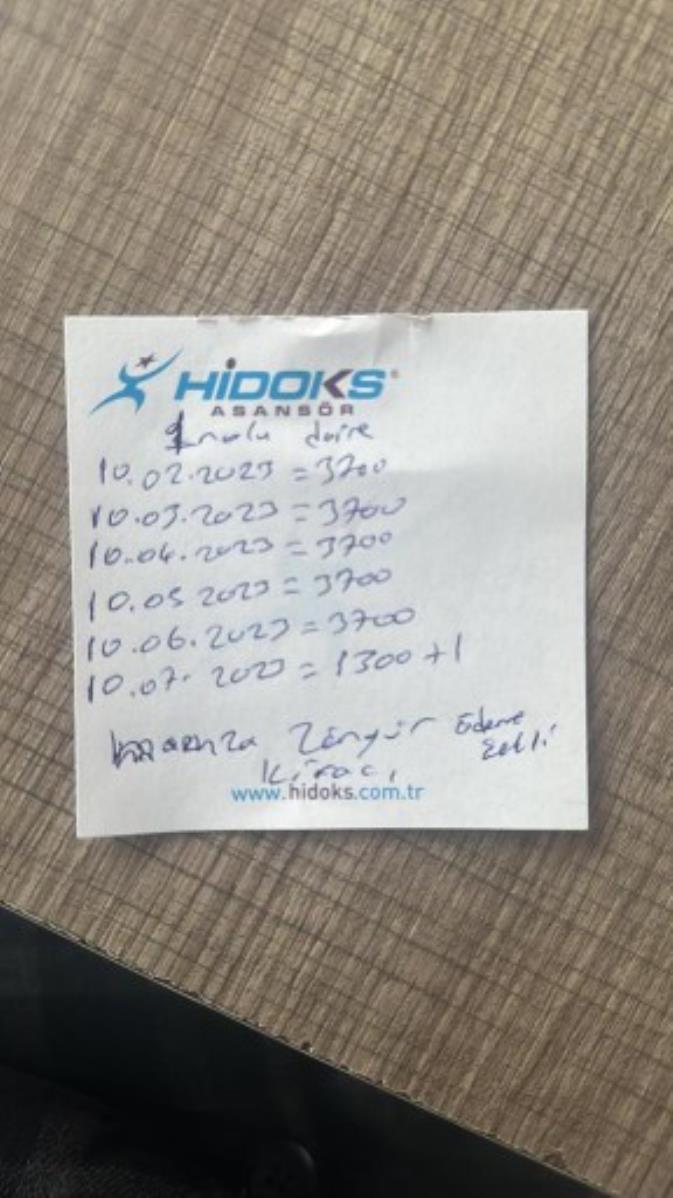 HİDOKS
ASANSÖR
1 nolu daire
10.02.2023 = 3700
10.03.2023 = 3700
10.04.2023 = 3700
10.05 2023 = 3700
10.06.2023 = 3700
10.07. 2023 = 1300 +1
ödeme
şekli
Kiracı
www.hidoks.com.tr